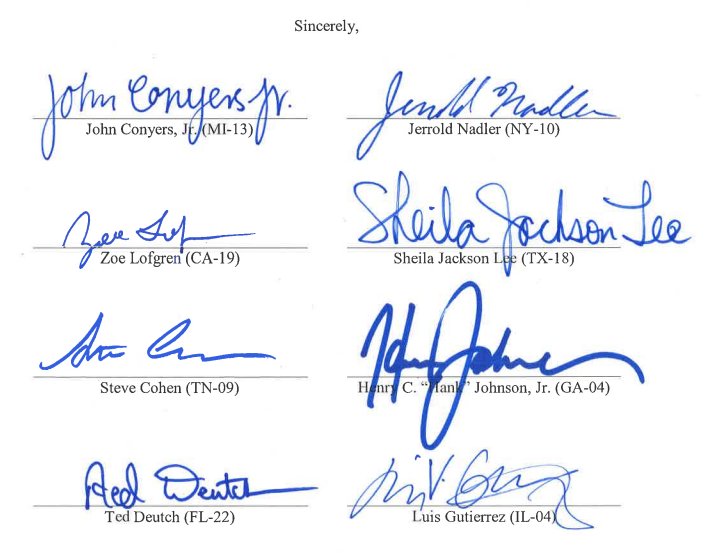 Sincerely,
John Conyers Jr. Jerrold Nadler
John Conyers, Jr. (MI-13) Jerrold Nadler (NY-10)
Zoe Lofgren Sheila Jackson Lee
Zoe Lofgren (CA-19) Sheila Jackson Lee (TX-18)
Steve Cohen Hank Johnson
Steve Cohen (TN-09) Henry C. “Hank” Johnson, Jr. (GA-04)
Ted Deutch Luis V. Gutierrez
Ted Deutch (FL-22) Luis Gutierrez (IL-04)